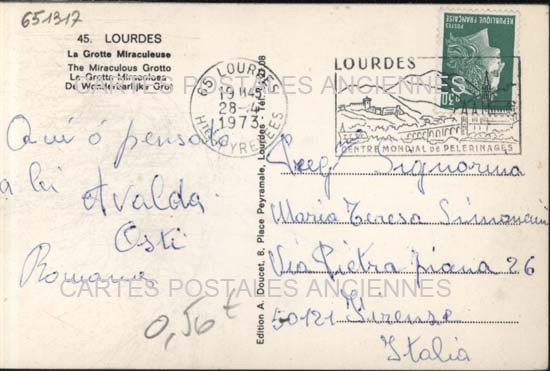 651317
45. LOURDES
La Grotte Miraculeuse
The Miraculous Grotto
La Grotta Miracolosa
De Wonderbarlijke Grot
65 LOURDES
19H45
28-4
1973
HTES PYRENEES
LOURDES
CENTRE MONDIAL DE PELERINAGES
REPUBLIQUE FRANÇAISE
POSTES
0,30
CARTES POSTALES ANCIENNES
Qui ó pensato
a lei Avalda
Osti
Romana
0,50 €
Edition A. Doucet, 8, Place Peyramale, Lourdes - Tél.
Signorina
Maria Teresa Simoncini
Via Pietra piana 26
50121 Firenze
Italia
CARTES POSTALES ANCIENNES